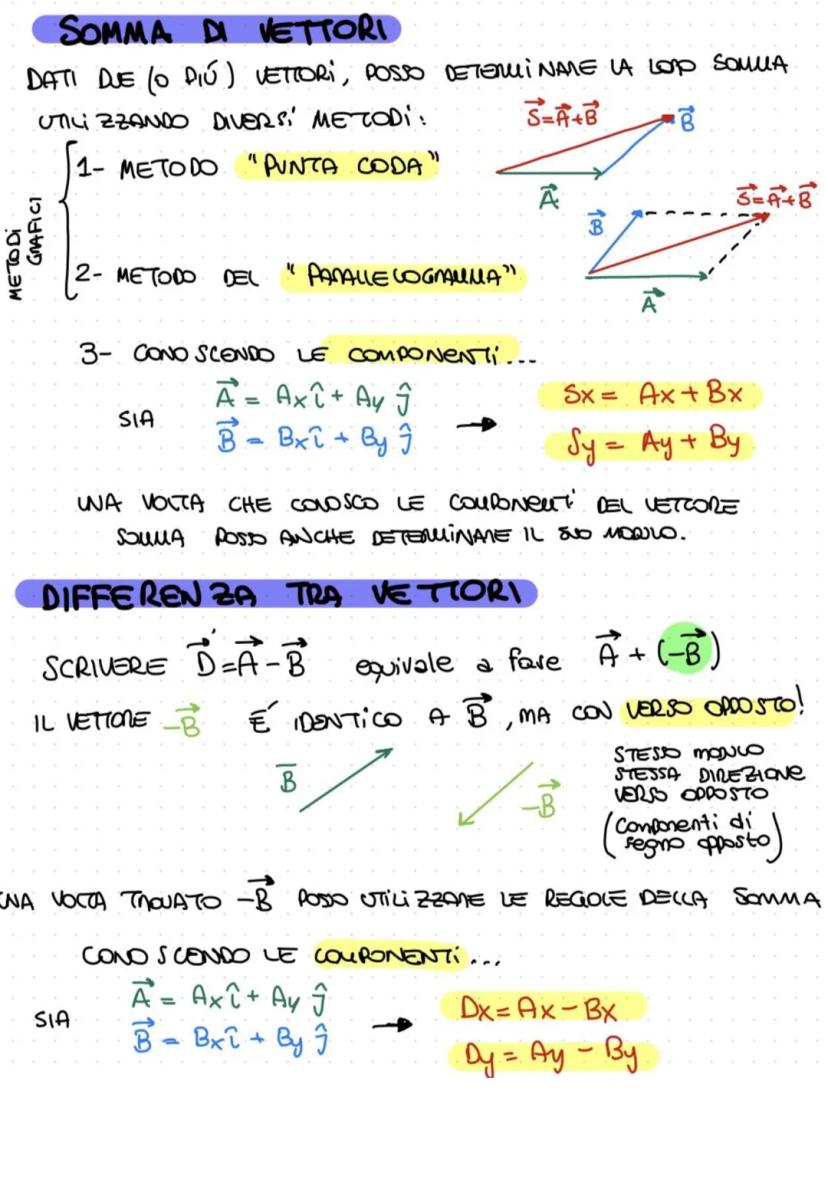 SOMMA DI VETTORI
DATI DUE (O PIÚ) VETTORI, POSSO DETERMINARE LA LORO SOMMA
UTILIZZANDO DIVERSI METODI:
S⃗=A⃗+B⃗
B⃗
A⃗
METODI
GRAFICI
1- METODO "PUNTA CODA"
S⃗=A⃗+B⃗
B⃗
A⃗
2- METODO DEL "PARALLELOGRAMMA"
3- CONOSCENDO LE COMPONENTI...
SIA
A⃗ = Axî + Ay ĵ
B⃗ = Bxî + By ĵ
→
Sx = Ax + Bx
Sy = Ay + By
UNA VOLTA CHE CONOSCO LE COMPONENTI DEL VETTORE
SOMMA POSSO ANCHE DETERMINARE IL SUO MODULO.
DIFFERENZA TRA VETTORI
SCRIVERE D⃗=A⃗-B⃗ equivale a fare A⃗ + (-B⃗)
IL VETTORE -B⃗ É IDENTICO A B⃗, MA CON VERSO OPPOSTO!
B̅
-B⃗
STESSO MODULO
STESSA DIREZIONE
VERSO OPPOSTO
(Componenti di
segno opposto)
UNA VOLTA TROVATO -B⃗ POSSO UTILIZZARE LE REGOLE DELLA SOMMA
CONOSCENDO LE COMPONENTI...
SIA
A⃗ = Axî + Ay ĵ
B⃗ = Bxî + By ĵ
→
Dx = Ax - Bx
Dy = Ay - By